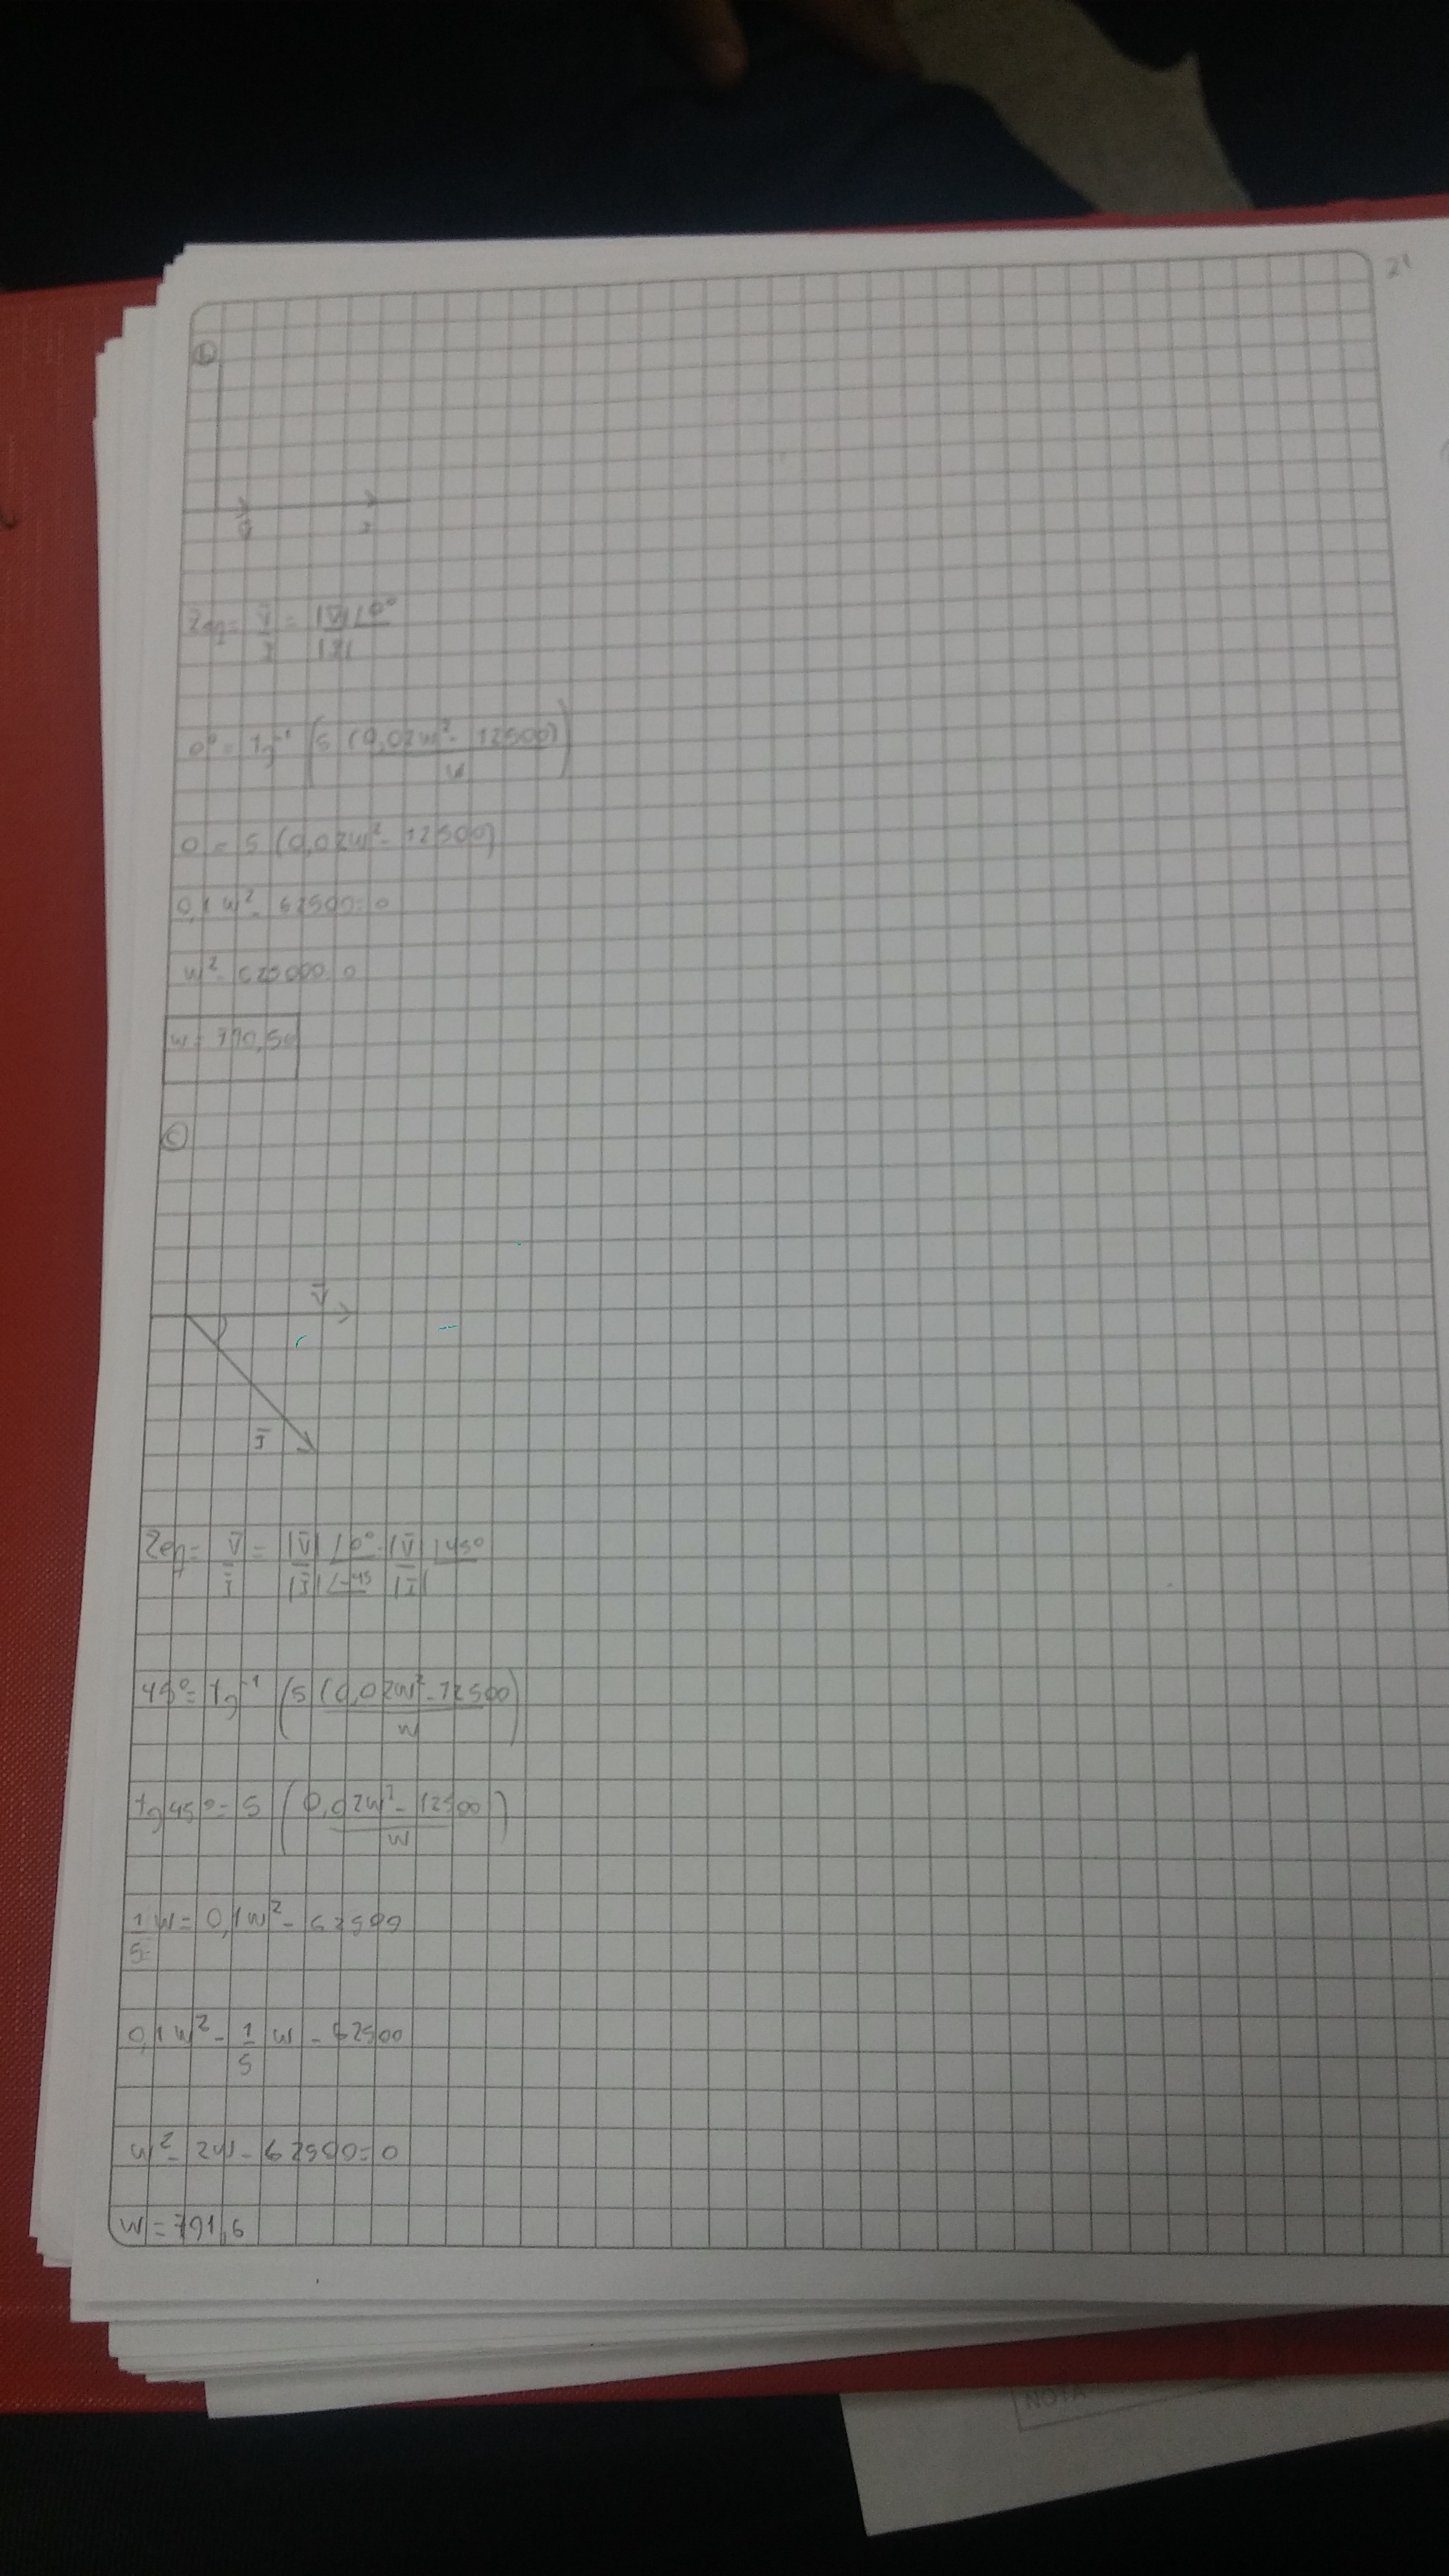 21
b
V̄ I
Zeq = V̄/I = |V̄| ∠0° / |I|
0° = tg⁻¹ (5 (0,02w² - 12500) / w)
0 = 5 (0,02w² - 12500)
0,1 w² - 62500 = 0
w² - 625000 = 0
w = 790,56
c
V̄
Ī
Zeq = V̄/Ī = |V̄| ∠0° / |Ī| ∠-45 · |V̄| / |Ī| ∠45°
45° = tg⁻¹ (5 (0,02w² - 12500) / w)
tg 45° = 5 (0,02w² - 12500 / w)
1/5 w = 0,1w² - 62500
0,1 w² - 1/5 w - 62500
w² - 2w - 62500 = 0
w = 791,6
NOTA